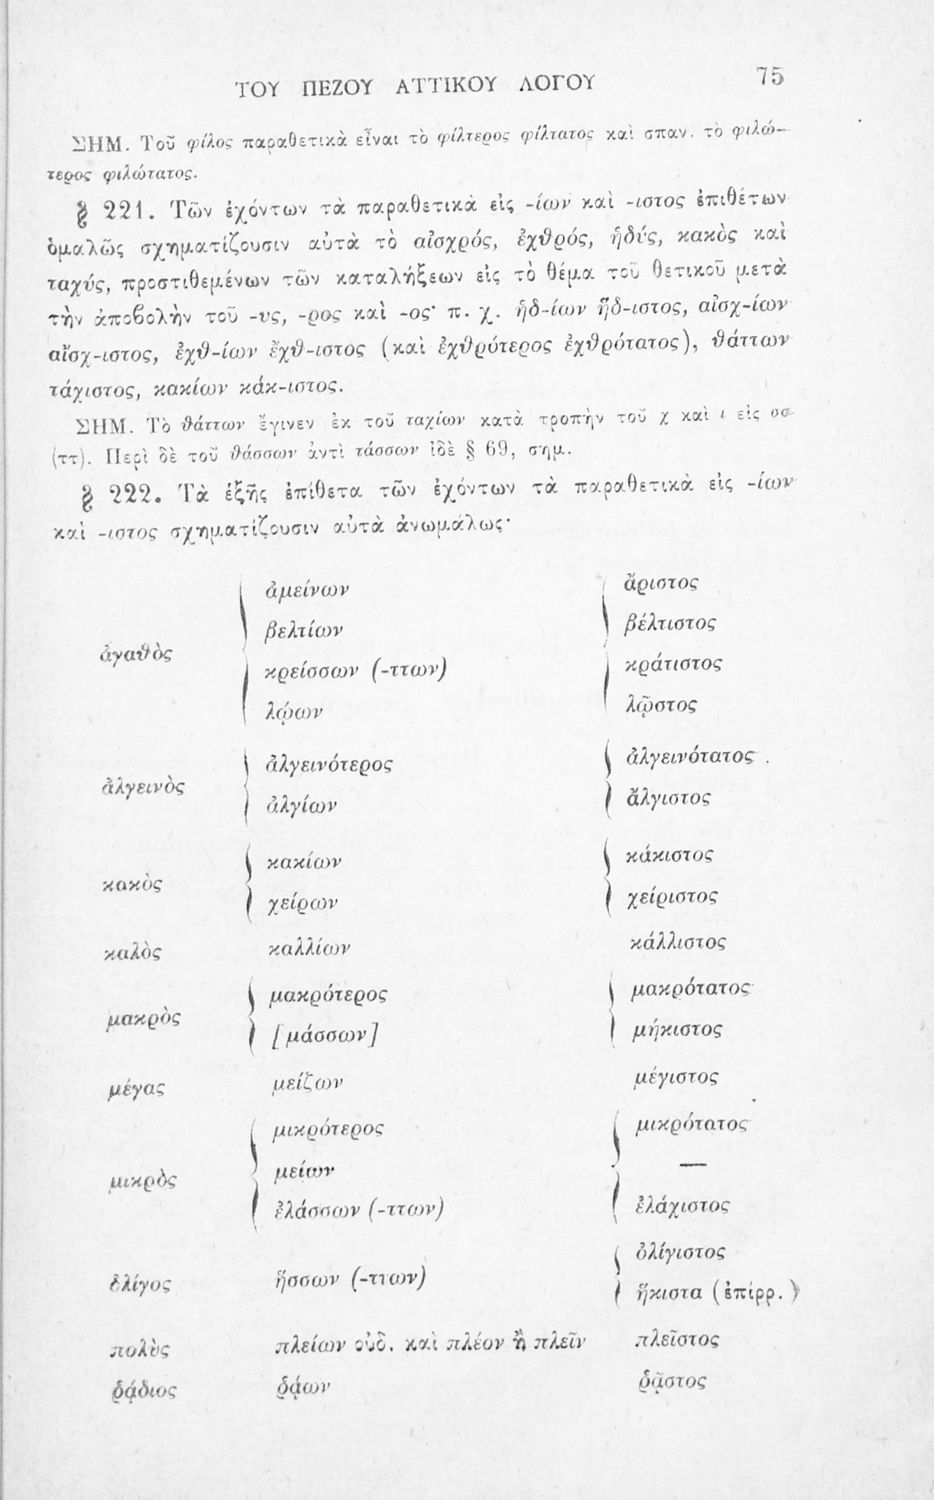 ΤΟΥ ΠΕΖΟΥ ΑΤΤΙΚΟΥ ΛΟΓΟΥ 75
ΣΗΜ. Τοῦ φίλος παραθετικὰ εἶναι τὸ φίλτερος φίλτατος καὶ σπαν. τὸ φιλώ-
τερος φιλώτατος.
§ 221. Τῶν ἐχόντων τὰ παραθετικὰ εἰς -ίων καὶ -ιστος ἐπιθέτων
ὁμαλῶς σχηματίζουσιν αὐτὰ τὸ αἰσχρός, ἐχθρός, ἡδύς, κακὸς καὶ
ταχύς, προστιθεμένων τῶν καταλήξεων εἰς τὸ θέμα τοῦ θετικοῦ μετὰ
τὴν ἀποβολὴν τοῦ -υς, -ρος καὶ -ος· π. χ. ἡδ-ίων ἥδ-ιστος, αἰσχ-ίων
αἴσχ-ιστος, ἐχθ-ίων ἔχθ-ιστος (καὶ ἐχθρότερος ἐχθρότατος), θάττων
τάχιστος, κακίων κάκ-ιστος.
ΣΗΜ. Τὸ θάττων ἔγινεν ἐκ τοῦ ταχίων κατὰ τροπὴν τοῦ χ καὶ ι εἰς σσ
(ττ). Περὶ δὲ τοῦ θάσσων ἀντὶ τάσσων ἰδὲ § 69, σημ.
§ 222. Τὰ ἑξῆς ἐπίθετα τῶν ἐχόντων τὰ παραθετικὰ εἰς -ίων
καὶ -ιστος σχηματίζουσιν αὐτὰ ἀνωμάλως·
ἀμείνων ἄριστος
βελτίων βέλτιστος
ἀγαθὸς
κρείσσων (-ττων) κράτιστος
λῴων λῷστος
ἀλγεινότερος ἀλγεινότατος
ἀλγεινὸς
ἀλγίων ἄλγιστος
κακίων κάκιστος
κακὸς
χείρων χείριστος
καλὸς καλλίων κάλλιστος
μακρότερος μακρότατος
μακρὸς
[μάσσων] μήκιστος
μέγας μείζων μέγιστος
μικρότερος μικρότατος
μικρὸς μείων —
ἐλάσσων (-ττων) ἐλάχιστος
ὀλίγιστος
ὀλίγος ἥσσων (-ττων)
ἥκιστα (ἐπίρρ.)
πολὺς πλείων οὐδ. καὶ πλέον ἢ πλεῖν πλεῖστος
ῥᾴδιος ῥᾴων ῥᾷστος